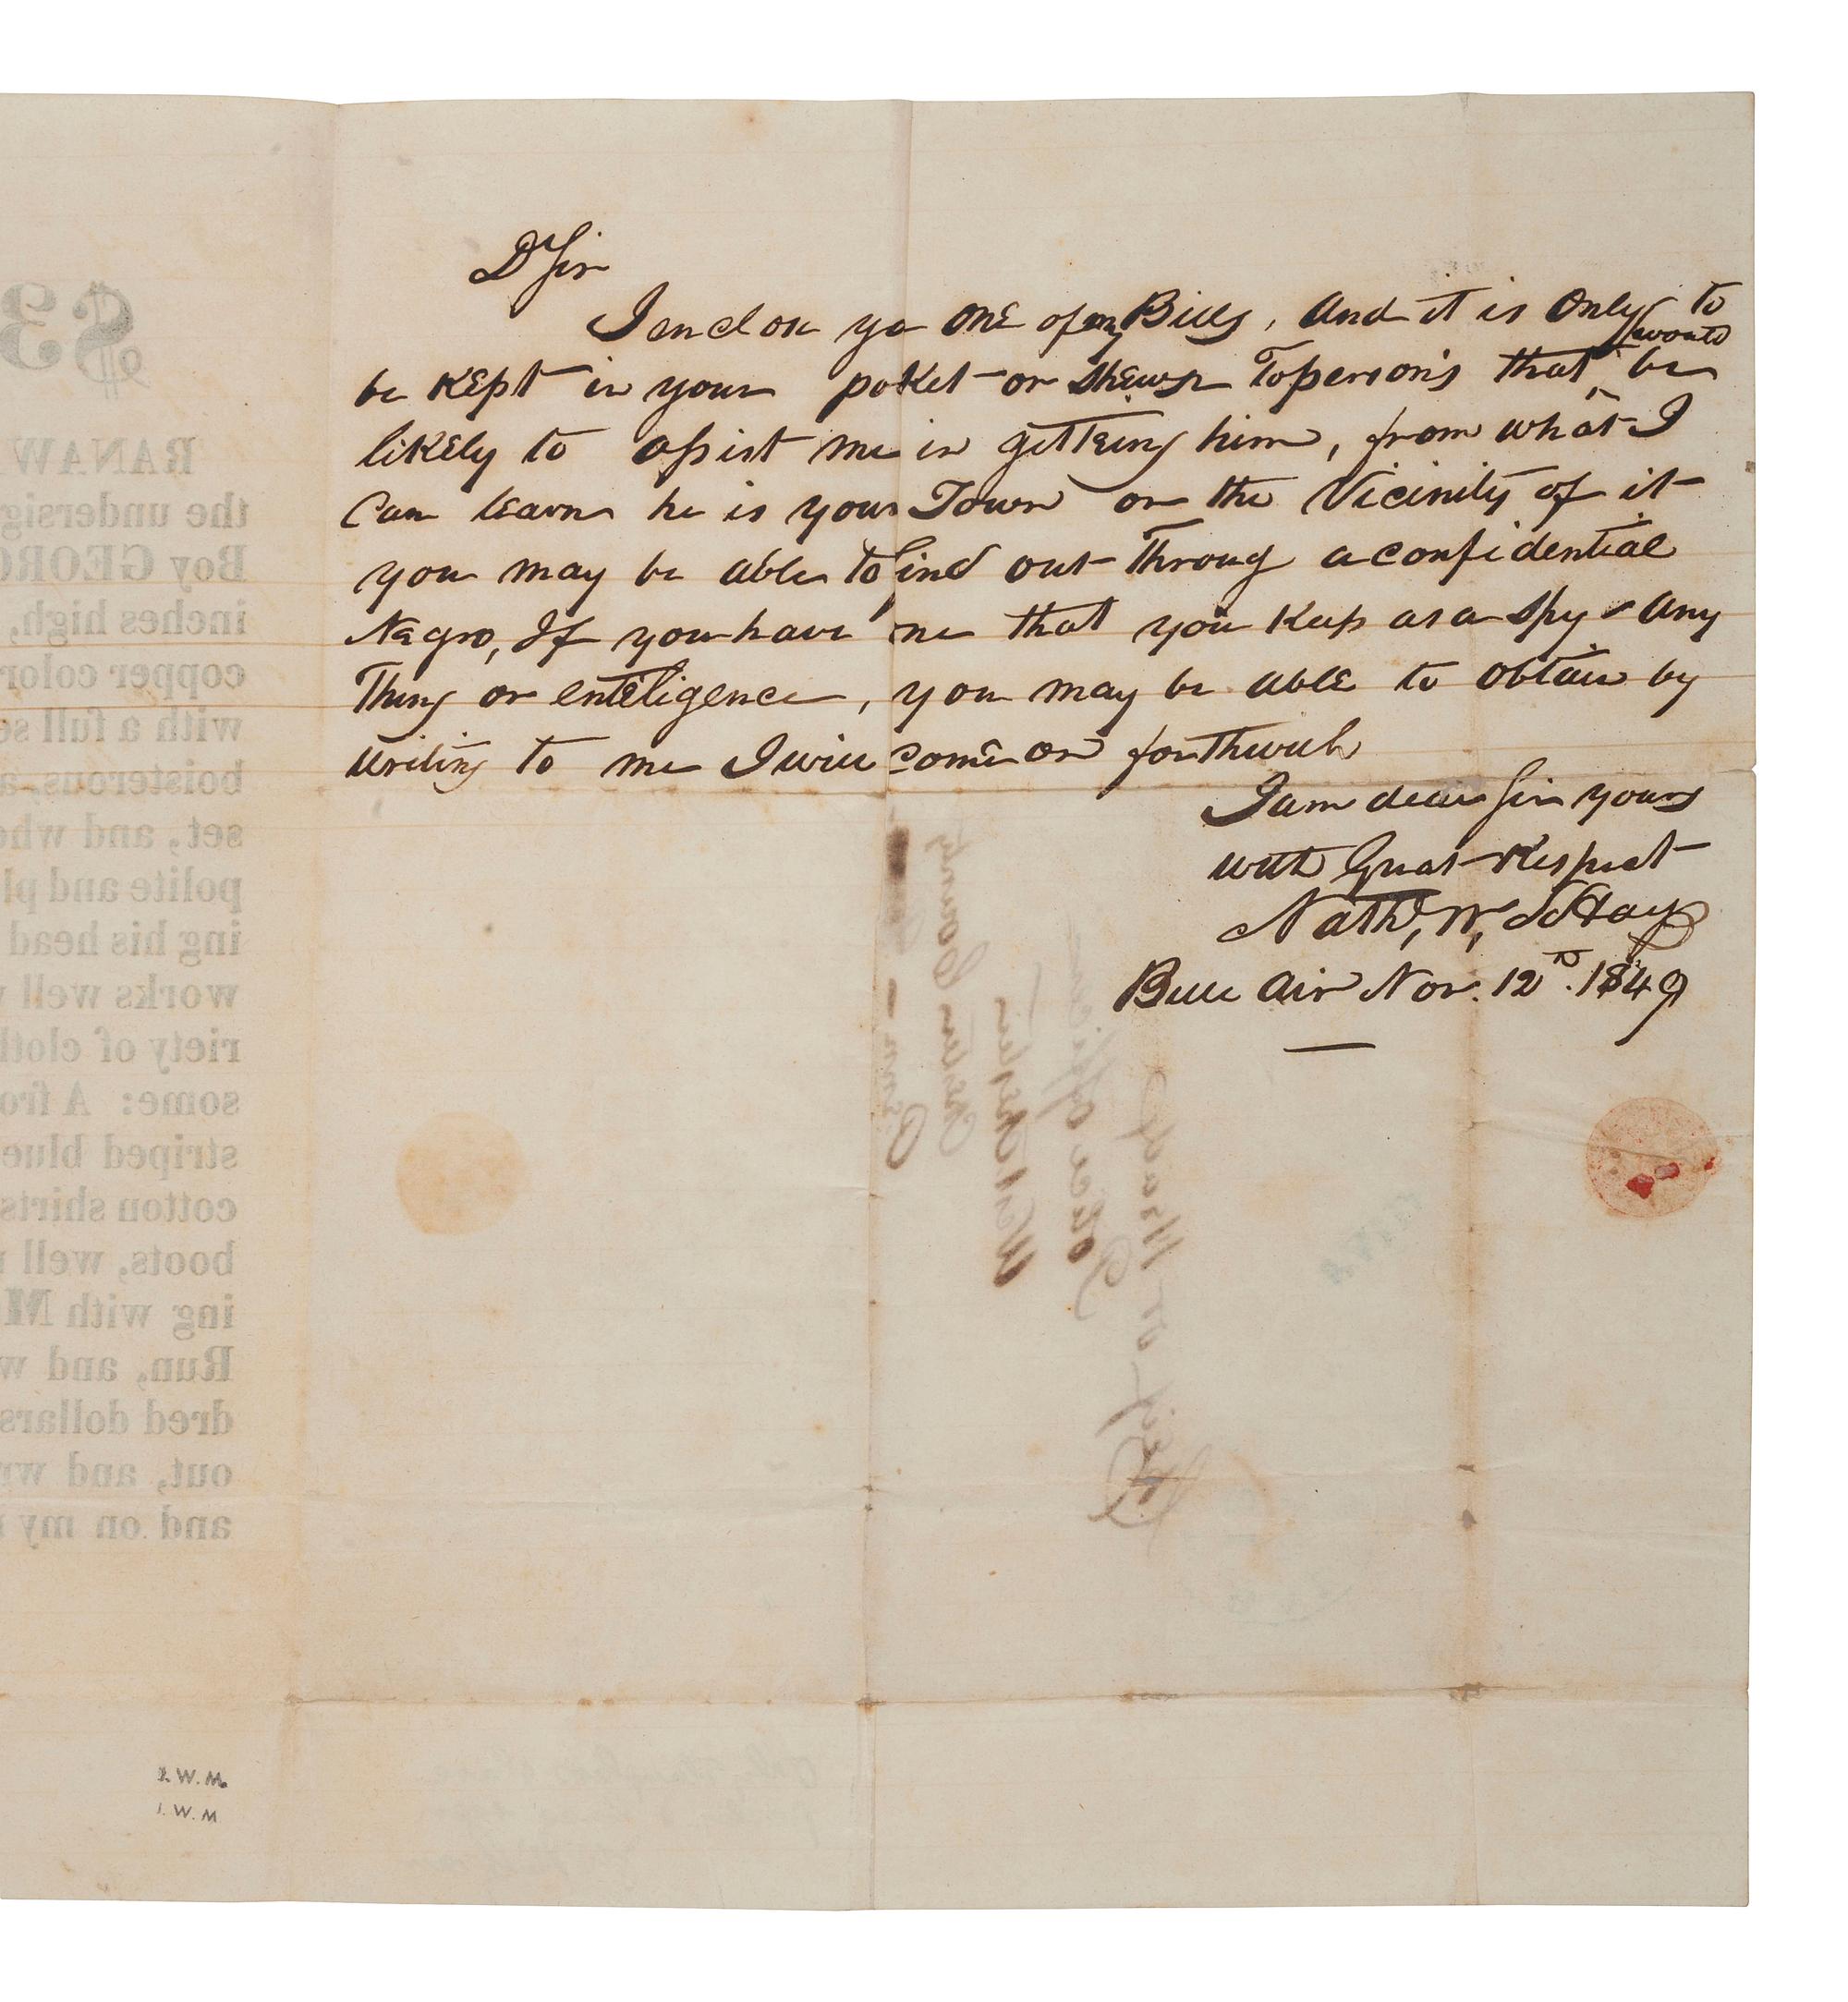 Dr Sir
I enclose yo one of my Bills, and it is only to
would
be kept in your poket or shewn To persons that ^ be
likely to assist me in getting him, from what I
Can learn he is your Town or the Vicinity of it
you may be able to find out Throug a confidential
Negro, If you have one that you Keep as a Spy
any
Thing or enteligence, you may be able to obtain by
writing to me I will come on forthwith
I am dear Sir yours
with Great Respect
Nathl, W,
Bell air Nov. 12th. 1849
$3
RANAW
the undersig
Boy GEORG
inches high,
copper color
with a full se
boisterous, a
set, and whe
polite and pl
ing his head
works well w
riety of cloth
some: A fro
striped blue
cotton shirts
boots, well
ing with M
Run, and w
dred dollars
out, and wr
and on my
Post Office
West Chester
Chester County
2. W. M.
1. W. M